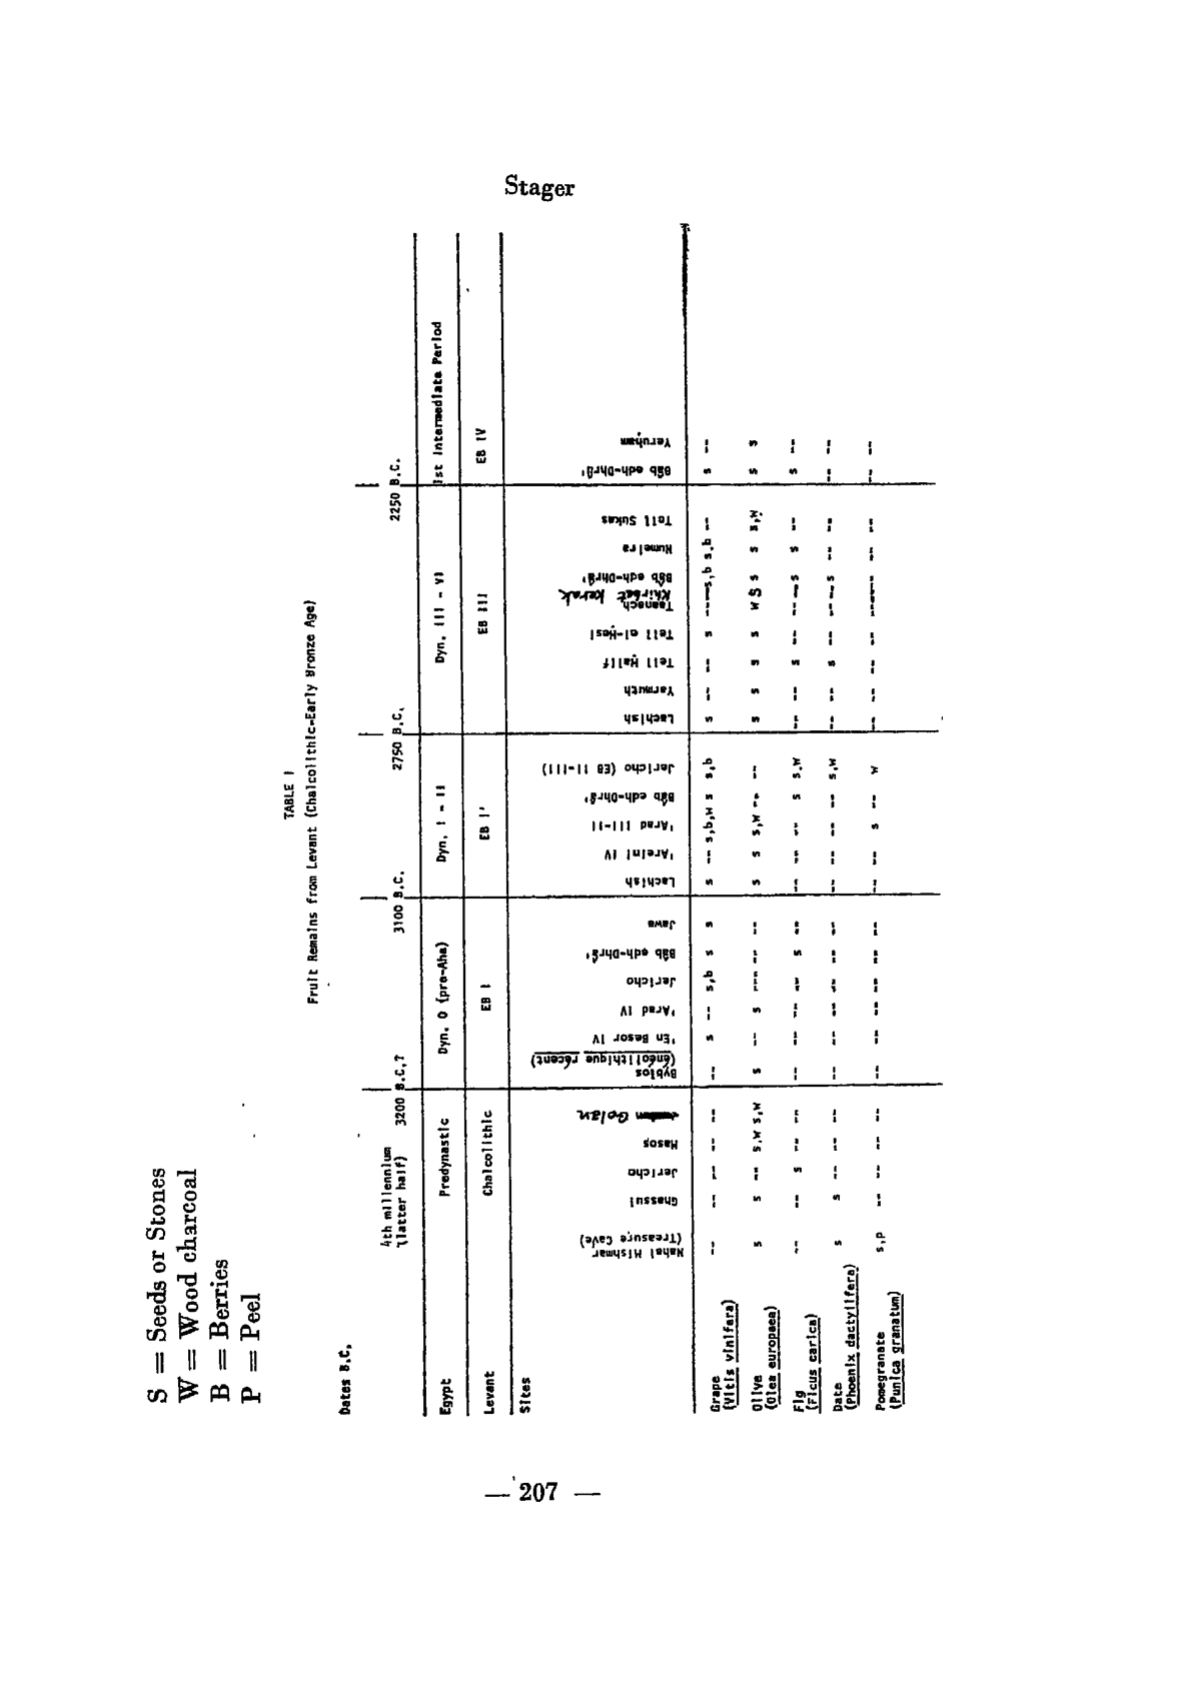 Stager
S = Seeds or Stones
W = Wood charcoal
B = Berries
P = Peel
TABLE I
Fruit Remains from Levant (Chalcolithic-Early Bronze Age)
Dates B.C. 4th millennium (latter half) 3200 B.C.? 3100 B.C. 2750 B.C. 2250 B.C.
Egypt Predynastic Dyn. 0 (pre-Aha) Dyn. I - II Dyn. III - VI 1st Intermediate Period
Levant Chalcolithic EB I EB II EB III EB IV
Sites
Nahal Mishmar (Treasure Cave)
Ghassul
Jericho
Masos
Golan
Byblos (énéolithique récent)
'En Besor IV
'Arad IV
Jericho
Bâb edh-Dhrâ'
Jawa
Lachish
'Areini IV
'Arad III-II
Bâb edh-Dhrâ'
Jericho (EB II-III)
Lachish
Yarmuth
Tell Ḥalif
Tell el-Ḥesi
Taanach
Khirbet Kerak
Bâb edh-Dhrâ'
Numeira
Tell Sukas
Bâb edh-Dhrâ'
Yeruḥam
Grape (Vitis vinifera) -- -- -- -- -- -- s -- s,b s s s -- s,b,w s s,b s -- -- s -- -- s,b s,b -- s --
Olive (Olea europaea) s s -- s,w s,w s -- s -- -- -- s s s,w -- -- s s s s w s s s s,w s s
Fig (Ficus carica) -- -- s -- -- -- -- -- -- s -- -- -- -- s s,w -- -- s -- -- -- s s -- s --
Date (Phoenix dactylifera) s s -- -- -- -- -- -- -- -- -- -- -- -- -- s,w -- -- s -- -- -- s -- -- -- --
Pomegranate (Punica granatum) s,p -- -- -- -- -- -- -- -- -- -- -- -- s -- w -- -- -- -- -- -- -- -- -- -- --
— 207 —